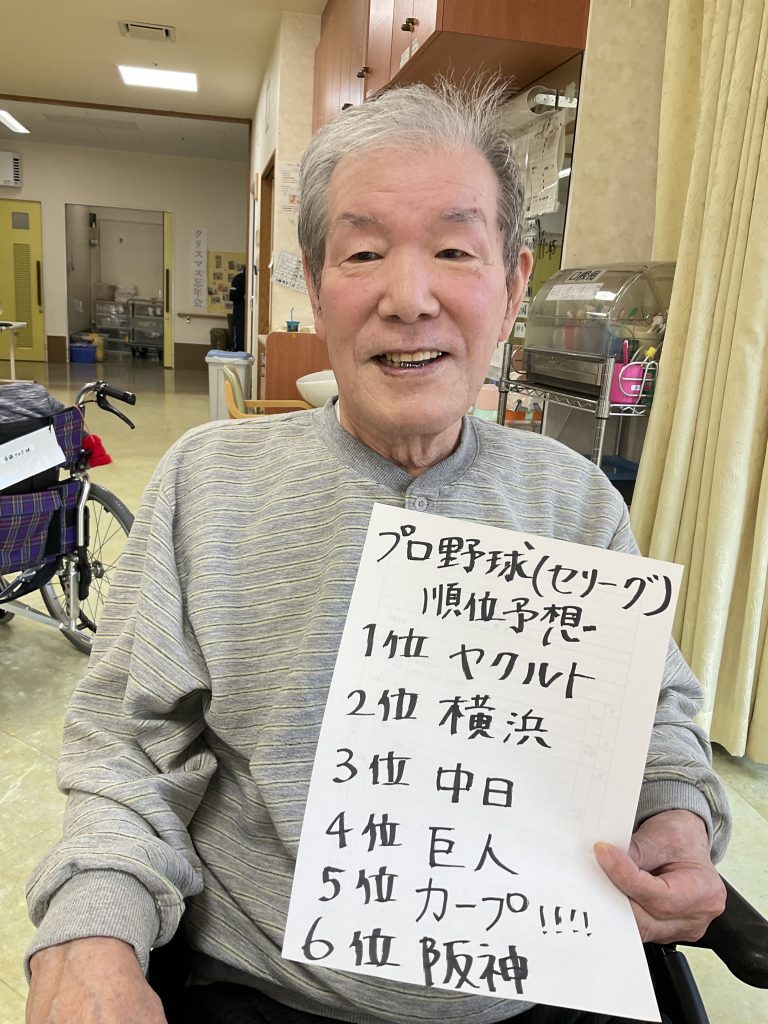 クリスマス忘年会
プロ野球(セリーグ)
順位予想
1位 ヤクルト
2位 横浜
3位 中日
4位 巨人
5位 カープ!!!!
6位 阪神